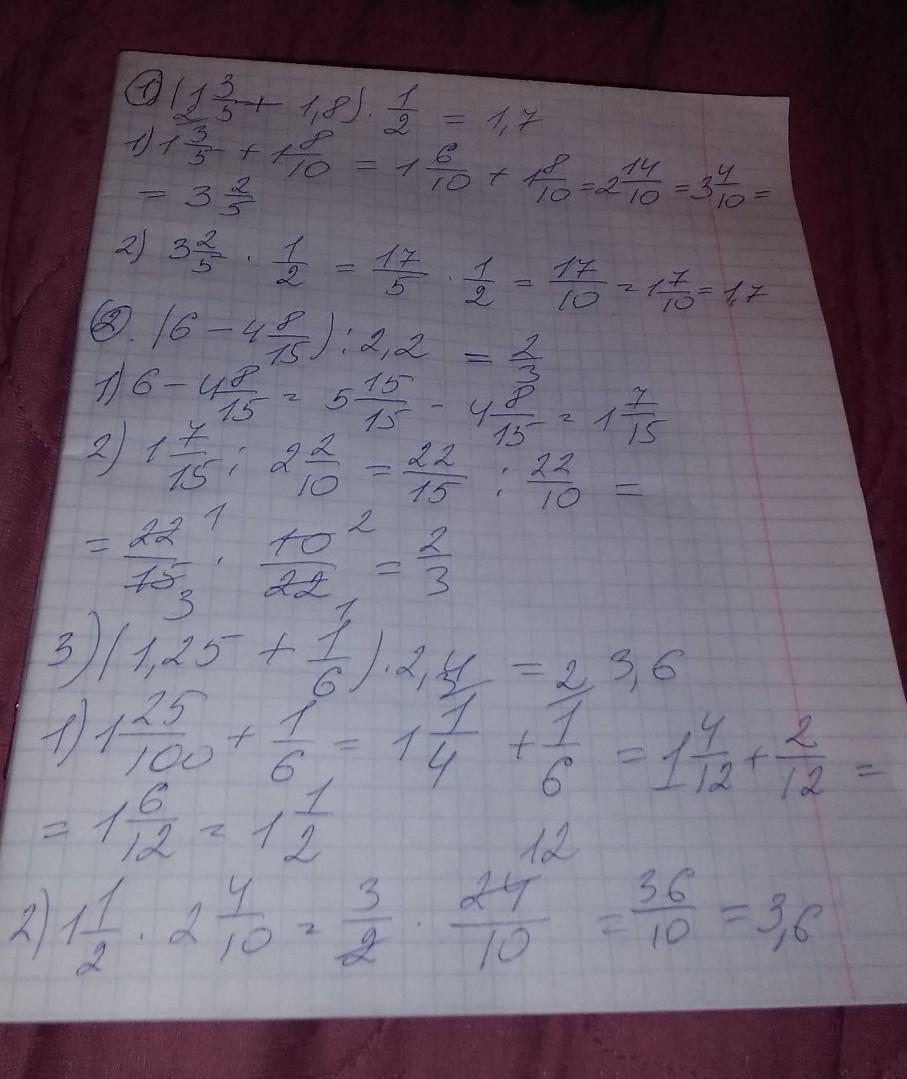 ① (1 3/5 + 1,8) · 1/2 = 1,7
1) 1 3/5 + 1 8/10 = 1 6/10 + 1 8/10 = 2 14/10 = 3 4/10 =
= 3 2/5
2) 3 2/5 · 1/2 = 17/5 · 1/2 = 17/10 = 1 7/10 = 1,7
②. (6 - 4 8/15) : 2,2 = 2/3
1) 6 - 4 8/15 = 5 15/15 - 4 8/15 = 1 7/15
2) 1 7/15 : 2 2/10 = 22/15 : 22/10 =
= 22 1/15 3 · 10 2/22 1 = 2/3
3) (1,25 + 1/6) · 2,4 = 3,6
1) 1 25/100 + 1/6 = 1 1/4 + 1/6 = 1 4/12 + 2/12 =
= 1 6/12 = 1 1/2
2) 1 1/2 · 2 4/10 = 3/2 · 24 12/10 = 36/10 = 3,6